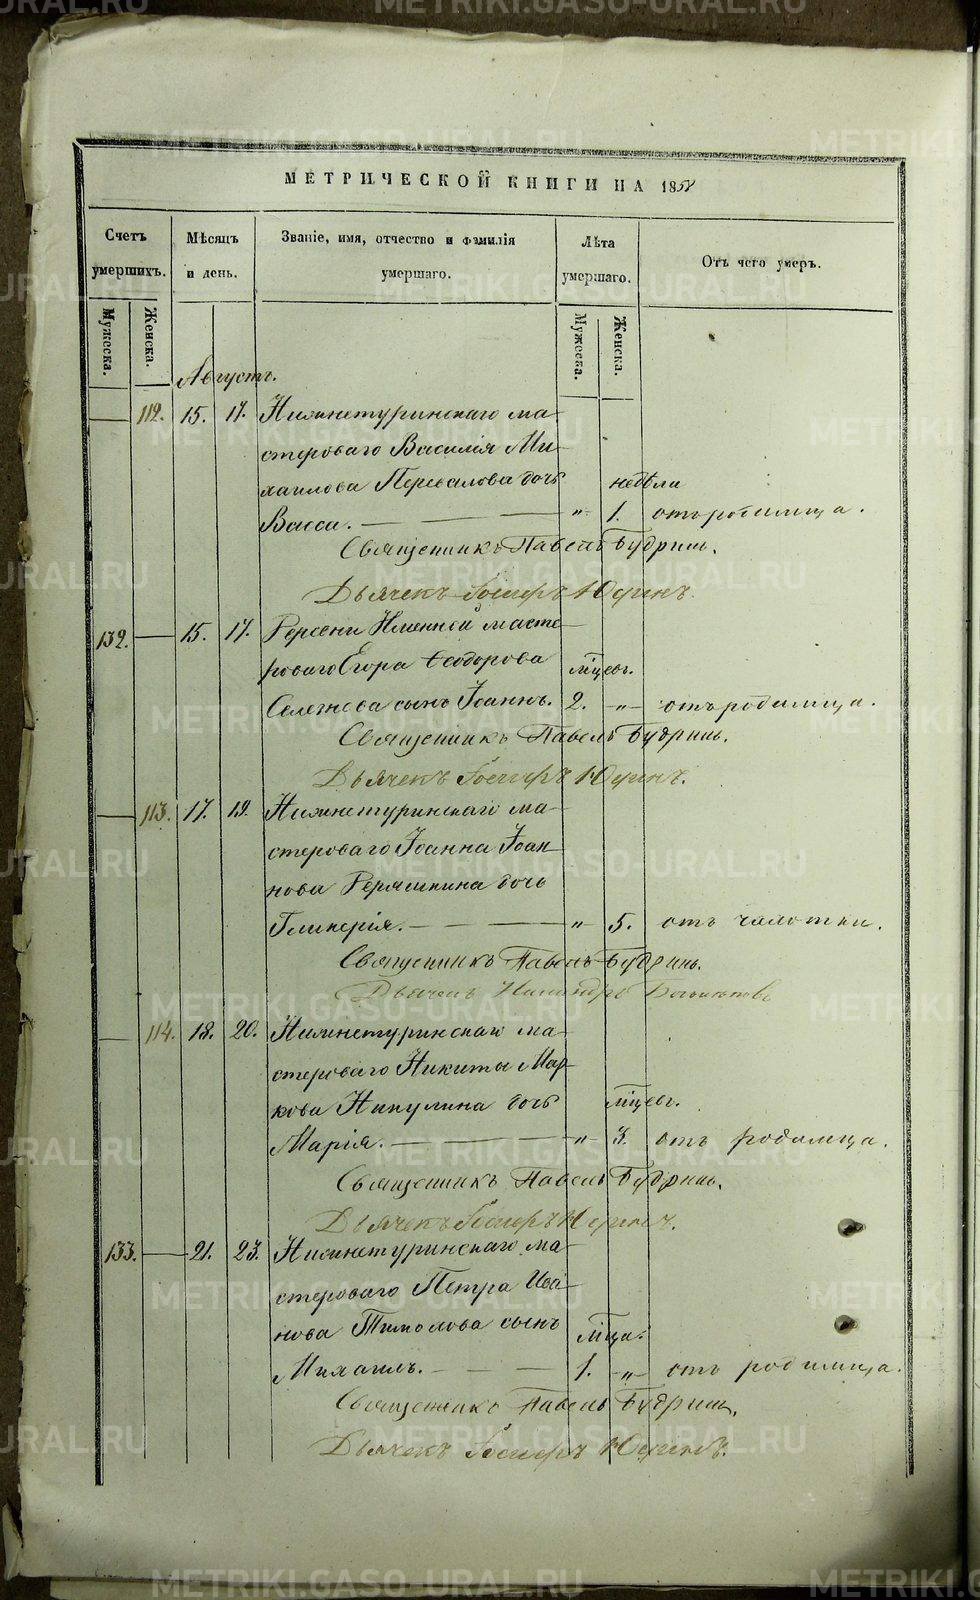 МЕТРИЧЕСКОЙ КНИГИ НА 1858
Счетъ умершихъ.
Мѣсяцъ и день.
Званіе, имя, отчество и фамилія умершаго.
Лѣта умершаго.
Отъ чего умеръ.
Мужеска.
Женска.
Мужеска.
Женска.
Августъ.
112. 15. 17. Нижнетуринскаго ма-
стероваго Василія Ми-
хаилова Перевалова дочь недѣли
Васса. — „ 1. отъ родимца.
Священникъ Павелъ Будринъ.
Дьячекъ Юринъ.
132. — 15. 17. масте-
роваго Егора Ѳеодорова мѣцевъ.
Селегнева сынъ Іоаннъ. 2. „ отъ родимца.
Священникъ Павелъ Будринъ.
Дьячекъ Юринъ.
— 113. 17. 19. Нижнетуринскаго ма-
стероваго Іоанна Іоан-
нова дочь
Гликерія. — „ 5. отъ чахотки.
Священникъ Павелъ Будринъ.
Дьячекъ Никандръ
— 114. 18. 20. Нижнетуринскаго ма-
стероваго Никиты Мар-
кова Никулина дочь мѣцевъ.
Марія. — „ 3. отъ родимца.
Священникъ Павелъ Будринъ.
Дьячекъ Юринъ.
133. — 21. 23. Нижнетуринскаго ма-
стероваго Петра Ива-
нова сынъ мѣца.
Михаилъ. — 1. „ отъ родимца.
Священникъ Павелъ Будринъ.
Дьячекъ Юринъ.
METRIKI.GASO-URAL.RU